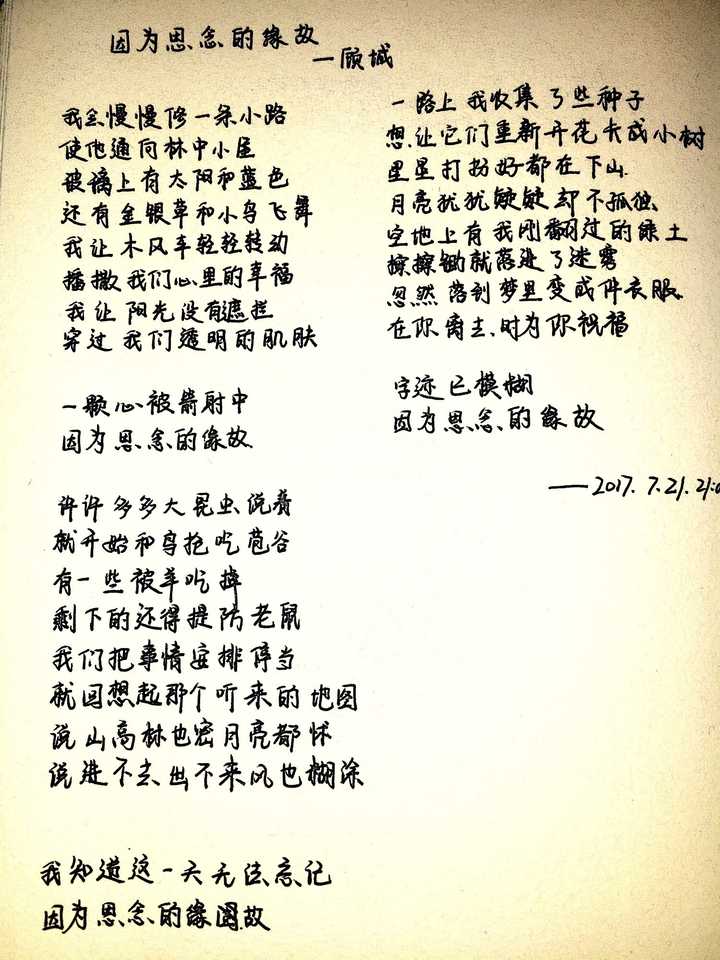 因为思念的缘故
—顾城
我会慢慢修一条小路
使他通向林中小屋
玻璃上有太阳和蓝色
还有金银草和小鸟飞舞
我让木风车轻轻转动
播撒我们心里的幸福
我让阳光没有遮拦
穿过我们透明的肌肤
一颗心被箭射中
因为思念的缘故
许许多多大昆虫说着
就开始和鸟抢吃苞谷
有一些被羊吃掉
剩下的还得提防老鼠
我们把事情安排停当
就回想起那个听来的地图
说山高林也密月亮都怀
说进不去出不来风也糊涂
我知道这一天无法忘记
因为思念的缘故
一路上我收集了些种子
想让它们重新开花长成小树
星星打扮好都在下山
月亮犹犹疑疑却不孤独
空地上有我刚翻过的绿土
擦擦锄就落进了迷雾
忽然落到梦里变成件衣服
在你离去时为你祝福
字迹已模糊
因为思念的缘故
——2017.7.21.